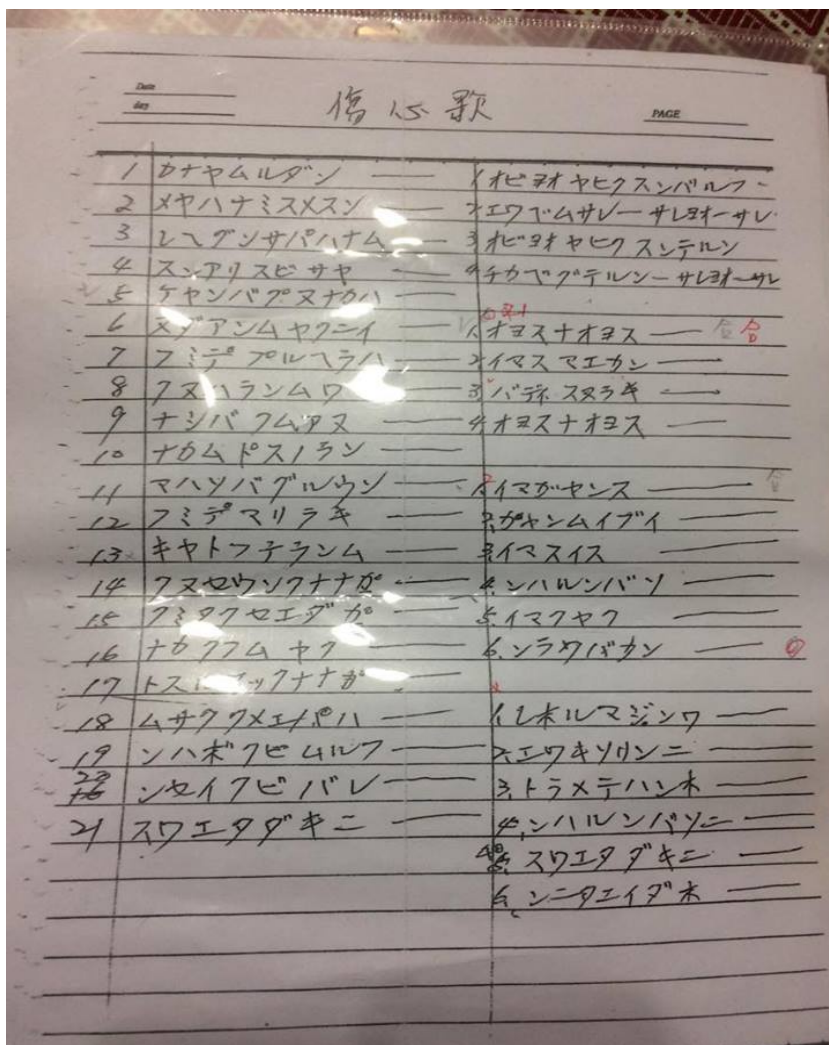 Date
day
傷心歌
PAGE
1 カナヤムルダン ——
2 メヤハナミスメスン
3 レヘグンサパハナム
4 スンアリスビサヤ ——
5 ケヤンバグヌナカハ
6 ヌダアンムヤクニイ
7 フミデプルヘラハ
8 クヌハランムワ ——
9 ナシバフムタヌ ——
10 ナカムドスノラン ——
11 マハソバグルウン ——
12 フミデマリラキ ——
13 キヤトフテランム ——
14 クヌセウンクナナガ ——
15 クミタクセエダガ ——
16 ナカフフムヤク ——
17 クナナガ ——
18 ムサククメエパハ ——
19 ンハボクビムルフ ——
20 ンセイクビバレ ——
21 スワエタダキニ ——
1, オビヨオヤヒクスンバルフ-
2, エワデムサレーサレヨオーサレ
3, オビヨオヤヒクスンテルン
4, チカベグテルンーサレヨオーサレ
1, オヨスナオヨス —— 合 合
2, イマスマエカン ——
3, バディスヌラキ ——
4, オヨスナオヨス ——
1, イマガヤンス —— 合
2, ガヤンムイブイ ——
3, イマスイス ——
4, ンハルンバソ ——
5, イマクヤク ——
6, ンラワバカン ——
1, レホルマジンワ ——
2, エワキソリンニ ——
3, トラメテハンホ ——
4, ンハルンバソニ ——
5, スワエタダキニ ——
6, ンニタエイダホ ——